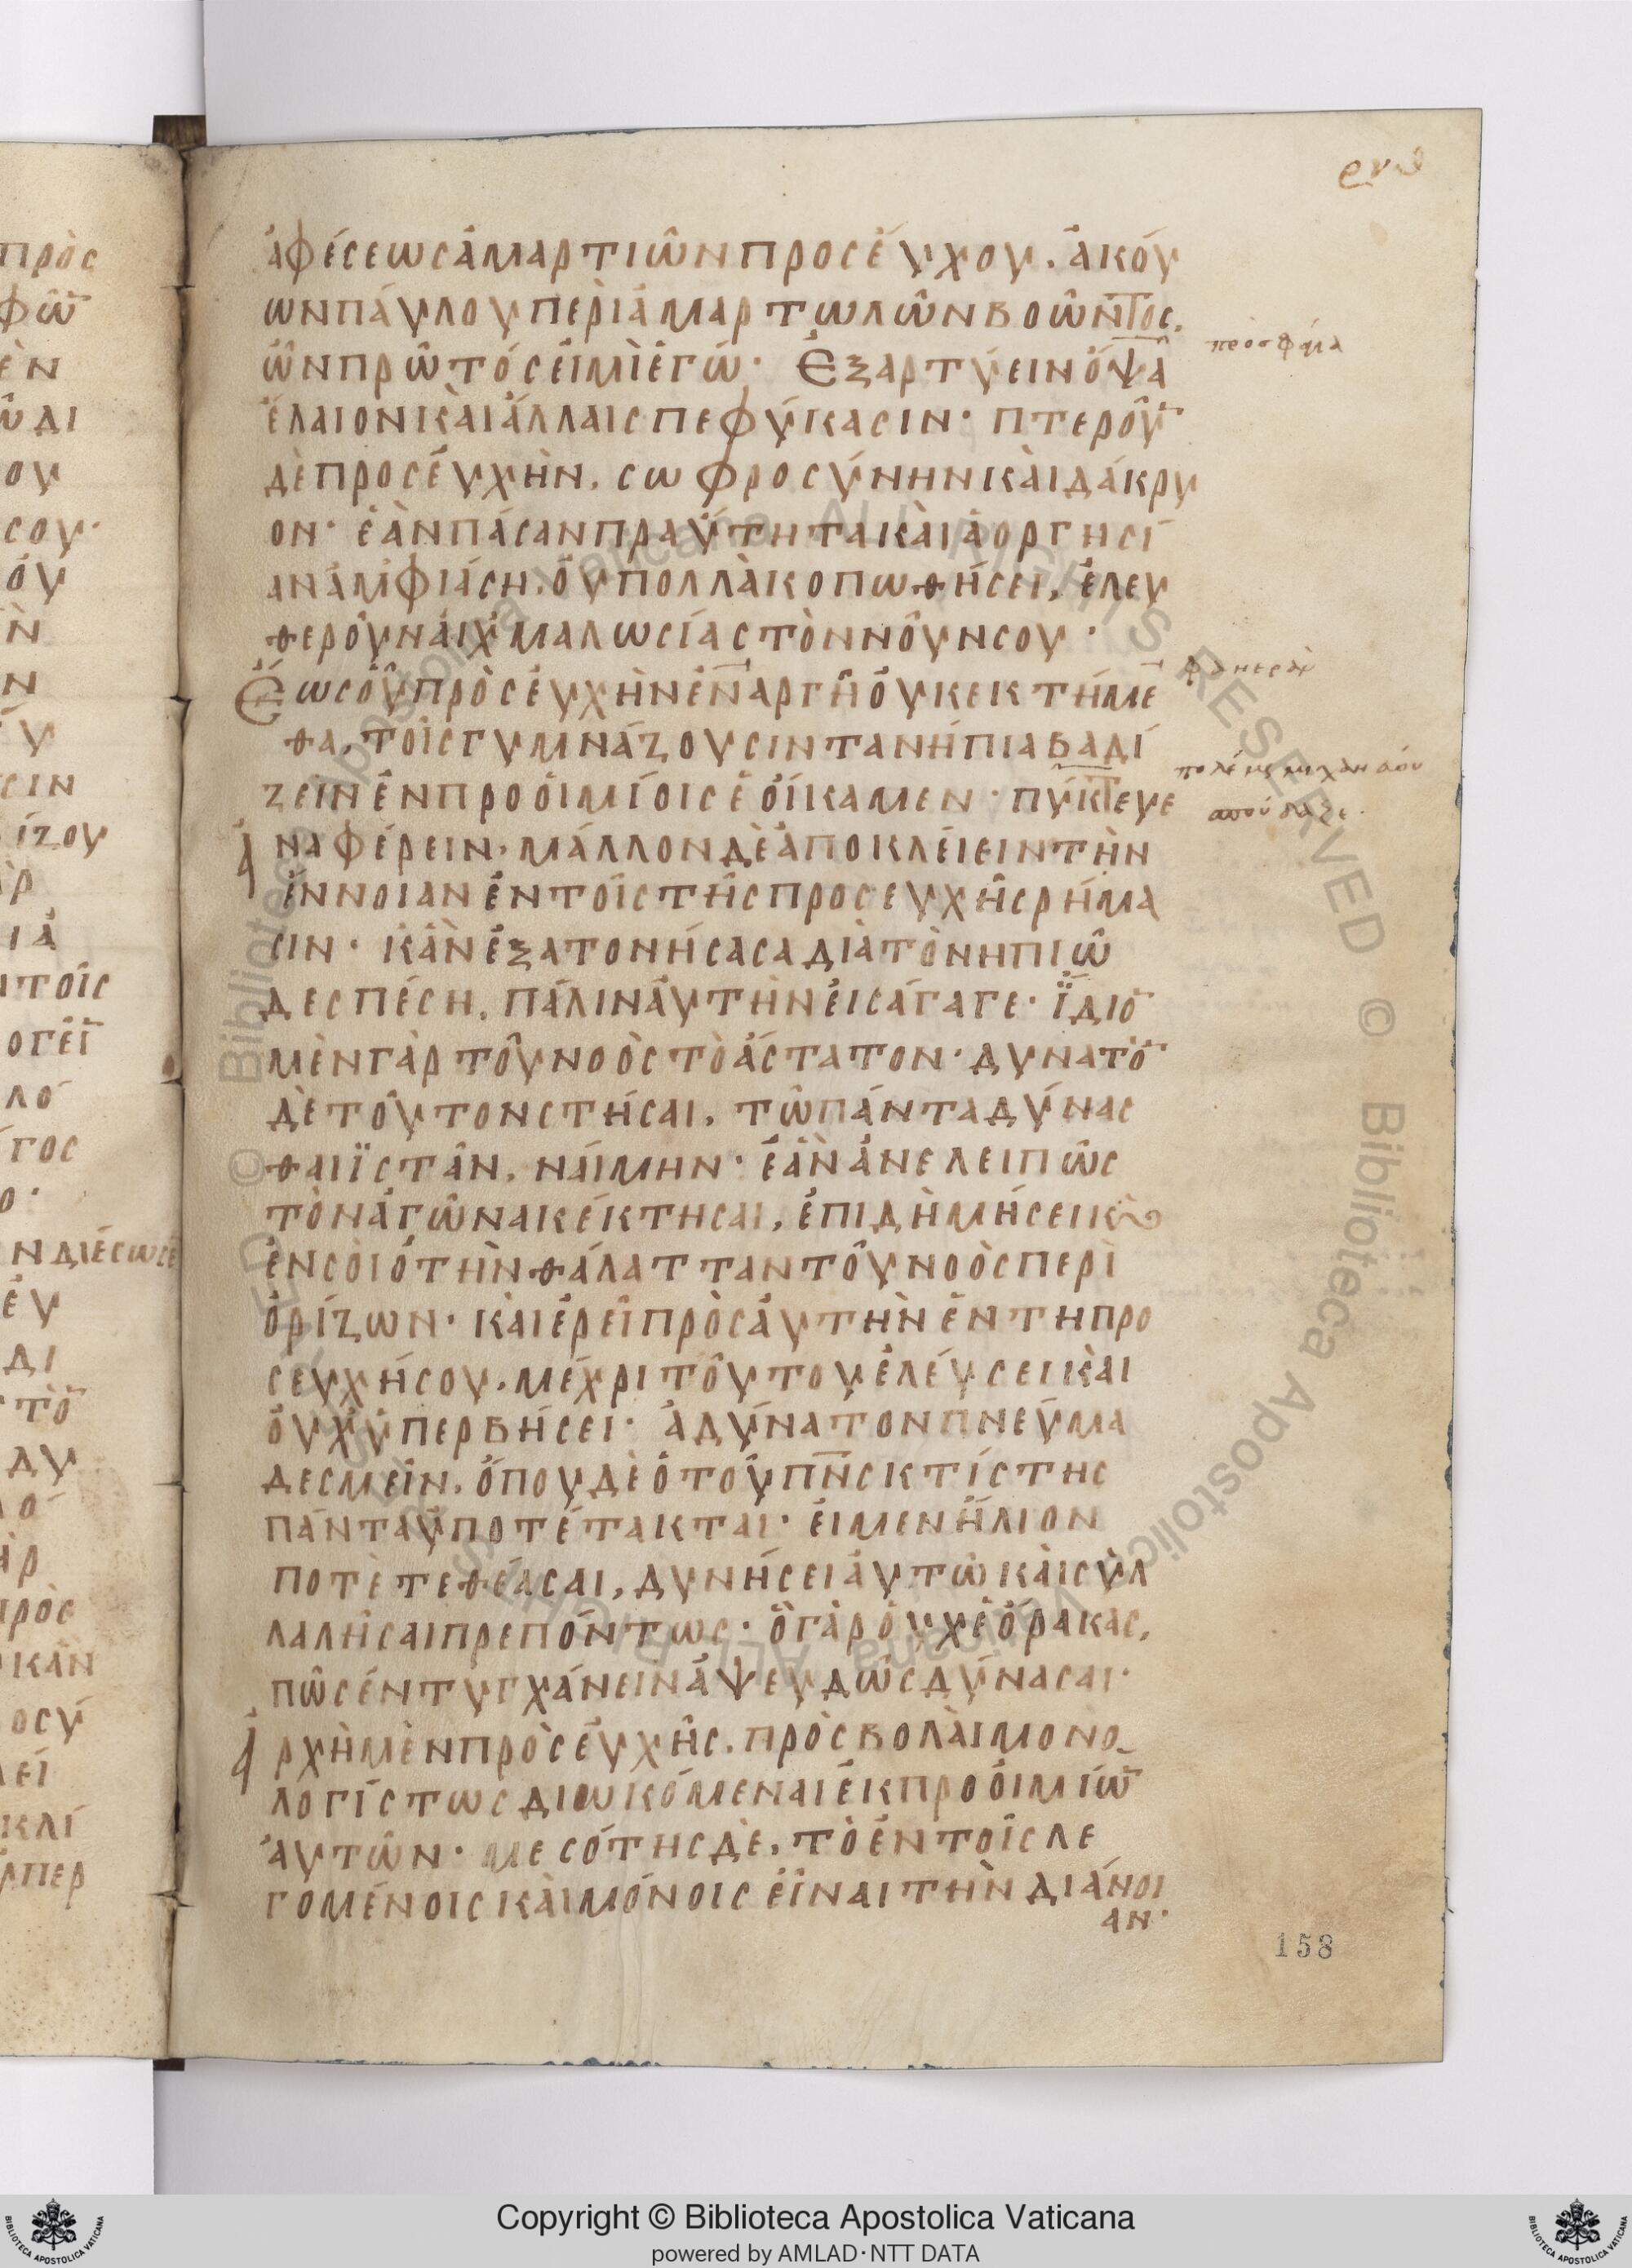 ἀφέσεως ἁμαρτιῶν προσεύχου. ἀκού
ων παύλου περὶ ἁμαρτωλῶν βοῶντος.
ὧν πρῶτός εἰμι ἐγώ· Ἐξαρτύειν ὄψα
ἔλαιον καὶ ἅλλαις πεφύκασιν· πτεροῦ
δὲ προσευχὴν, σωφροσύνην καὶ δάκρυ
ον· ἐὰν πάσαν πραΰτητα καὶ ἀοργησί
αν ἀμφιάσῃ, οὐ πολλὰ κοπωθήσει, ἐλευ
θεροῦν αἰχμαλωσίας τὸν νοῦν σου·
Ἕως οὗ προσευχὴν ἐναργῆ οὐ κεκτήμε
θα, τοῖς γυμνάζουσιν τα νήπια βαδί
ζειν ἐν προοιμίοις ἐοίκαμεν· πύκτευε
ἀναφέρειν. μάλλον δὲ ἀποκλείειν τὴν
ἔννοιαν ἐν τοῖς τῆς προσευχῆς ρήμα
σιν· κἂν ἐξατονήσασα διὰ τὸ νηπιῶ
δες πέσῃ, πάλιν αὐτὴν εἰσάγαγε· ἴδιο
μὲν γὰρ τοῦ νοὸς τὸ ἄστατον· δυνατὸ
δὲ τοῦτον στήσαι, τῶ πάντα δύνας
θαι ϊστᾶν, ναίμην· ἐὰν ἀνελειπῶς
τὸν ἀγῶνα κέκτησαι, ἐπιδημήσει κὶ
ἐν σοὶ ὁ τὴν θάλατταν τοῦ νοὸς περὶ
ὁρίζων· καὶ ἐρεῖ πρὸς αὐτὴν ἐν τη προ
σευχή σου. μέχρι τούτου ἐλεύσει καὶ
οὐχ ὑπερβήσει· ἀδύνατον πνεύμα
δεσμεῖν. ὅπου δὲ ὁ τοῦ πνς κτίστης
πάντα ὑποτέτακται· εἰ μεν ἥλιον
ποτὲ τεθέασαι, δυνήσει αὐτῶ καὶ συλ
λαλήσαι πρεπόντως· ὃ γὰρ οὐχ ἑόρακας,
πῶς ἐντυγχάνειν ἀψευδῶς δύνασαι·
ἀρχὴ μὲν προσευχῆς, προσβολαὶ μονο
λογίστως διωκόμεναι ἐκ προοιμίω
αὐτῶν· μεσότης δὲ, τὸ ἐν τοῖς λε
γομένοις καὶ μόνοις εἶναι τὴν διάνοι
αν·
158
Copyright © Biblioteca Apostolica Vaticana
powered by AMLAD·NTT DATA